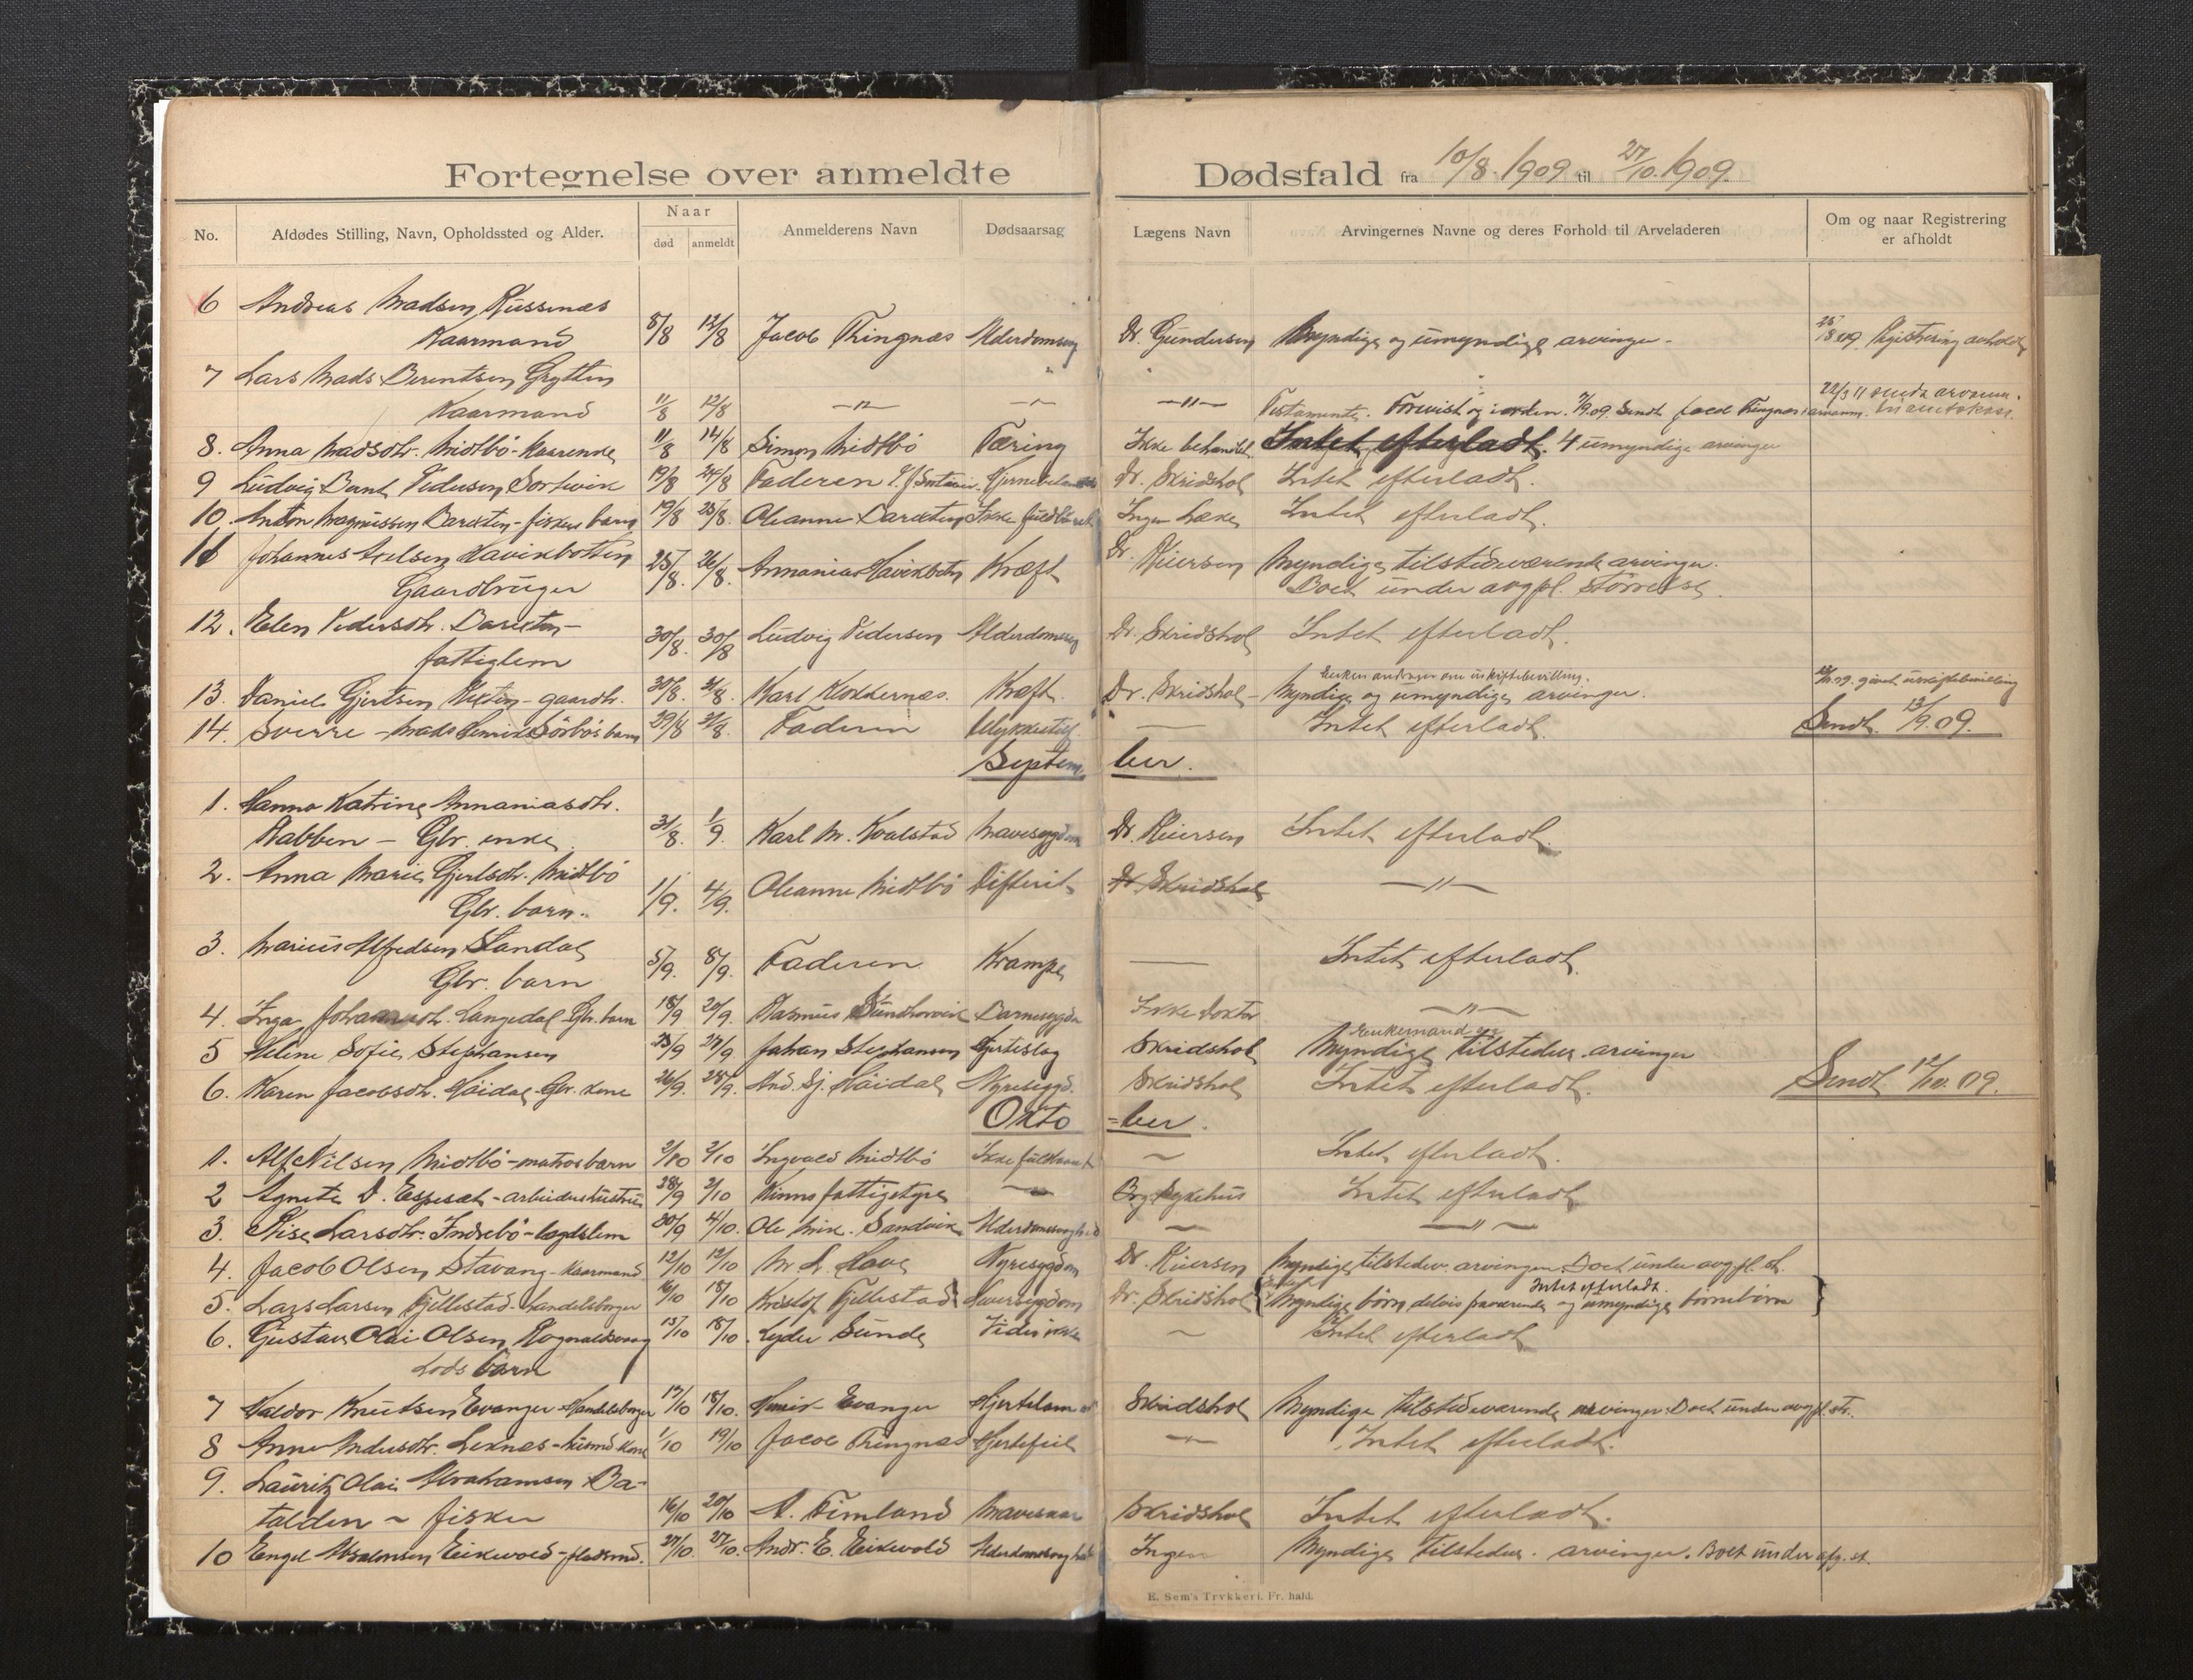 Fortegnelse over anmeldte Dødsfald fra 10/8. 1909 til 27/10. 1909.
No. Afdødes Stilling, Navn, Opholdssted og Alder. Naar død anmeldt Anmelderens Navn Dødsaarsag Lægens Navn Arvingernes Navne og deres Forhold til Arveladeren Om og naar Registrering er afholdt
6 Andreas Madsen
Kaarmand 8/8 12/8 Jacob Tringnæs Alderdomssvag Dr. Gundersen Myndige og umyndige arvinger. Registrering avholdt
7 Lars Mads Berentsen Grytten
Kaarmand 11/8 12/8 —"— —"— —"— Testamente. 7/9 09. Sendt Jacob Tringnæs 22/3 11 sendt
8. Anna Madsdtr. Midtbö - Kaarenke 11/8 14/8 Simon Midtbö Tæring Ikke behandlet Intet efterladt. 4 umyndige arvinger
9 Ludvig Bernt Pedersen Sortevik 19/8 24/8 Faderen Dr. Skridshol Intet efterladt.
10. Anton Magnussen Barekten - fiskers barn 19/8 25/8. Oleanne Barekten Ikke fuldbaaret Ingen Læke Intet efterladt.
11 Johannes Axelsen Havikbotten
Gaardbruger 25/8. 26/8. Annanias Havikbotn Kræft Dr. Kiersen Myndige tilstedeværende arvinger.
Boet under avgpl. störrelse.
12. Elen Pedersdtr. Barekten -
fattiglem 30/8. 30/8 Ludvig Pedersen Alderdomssvag Dr. Skridshol Intet efterladt.
13. Daniel Gjertsen - gaardbr. 30/8. 31/8. Karl Kloddernæs. Kræft Dr. Skridshol - Myndige og umyndige arvinger.
14. Sverre - Mads Henrik Sörbös barn 29/8 31/8. Faderen Ulykkestilf. — Intet efterladt. Sendt 13/9. 09.
September.
1. Hanna Katrine Annaniasdtr.
Nabben - Gbr. enke. 31/8. 1/9. Karl M. Kvalstad Mavesygdom Dr. Kiersen Intet efterladt.
2. Anna Marie Gjertsdtr. Midtbö
Gbr. barn. 1/9. 4/9. Oleanne Midtbö Difterit Dr. Skridshol —"—
3. Marius Alfredsen Standal
Gbr. barn 5/9. 8/9. Faderen Krampe — Intet efterladt.
4. Inga Johannesdtr. Langedal Gbr. barn 18/9 20/9. Rasmus Barnesygdom Ikke doktor —"—
5 Helene Sofie Stephansen 23/9 27/9. Johan Stephansen Hjerteslag Skridshol Enkemand og
Myndige tilstedev. arvinger
6. Karen Jacobsdtr. Höidal Gbr. kone 26/9. 28/9. And. Sj. Höidal Nyresygd. Skridshol Intet efterladt. Sendt 12/10. 09.
Okto=ber.
1. Alf Nilsen Midtbö - matros barn 2/10 2/10 Ingvald Midtbö Ikke fuldbaaret ~ Intet efterladt.
2 Agnete D. Espeset - arbeiderhustru 28/9 2/10 Kinns fattigstyre — Sykehus Intet efterladt.
3. Larsdtr. Indrebö - lægdslem 30/9 4/10. Ole Mik. Sandvik Alderdomssvaghed ~ —"—
4. Jacob Olsen Stavang - Kaarmand 12/10 12/10 M. L. Hove Nyresygdom Dr. Kiersen Myndige tilstedev. arvinger. Boet under avgpl. st.
5. Lars Larsen Fjellestad - Handelsborger 16/10 18/10 Kristof Fjellestad Leversygdom Dr. Skridshol Intet efterladt.
{Myndige börn delvis fraværende og umyndige börnebörn}
6. Gustav Olai Olsen Rognaldsvaag 15/10 18/10. Lyder Sunde Vides ikke ~ Intet efterladt
Lods barn
7 Haldor Knutsen Evanger - Handelsborger 17/10 18/10. Henrik Evanger Hjertelammelse Skridshol Myndige tilstedeværende arvinger. Boet under avgpl. str.
8 Anne Andersdtr. Leknes - husmd. kone 1/10 19/10 Jacob Tringnæs Hjertefeil —"— Intet efterladt.
9. Lauritz Olai Abrahamsen Ba-
talden ~ fisker 16/10 20/10 A. Timland Mavesaar Skridshol Intet efterladt.
10 Engel Absalonsen Eikevold - pladsmd. 27/10. 27/10. Andr. E. Eikevold Alderdomssvaghed Ingen Myndige tilstedev. arvinger. Boet under afg. st.
E. Sem's Trykkeri, Fr. hald.